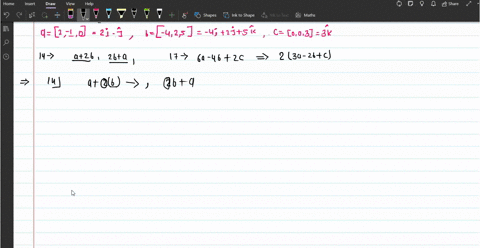 File Home Insert Draw View Help
Shapes Ink to Shape Ink to Text Maths
a = [2,-1,0] = 2î - ĵ , b = [-4,2,5] = -4î + 2ĵ + 5k̂ , c = [0,0,3] = 3k̂
14 → a+2b, 2b+a, 17 → 6a-4b+2c ⇒ 2(3a-2b+c)
⇒ 14] a+2(b) → , 2b+a